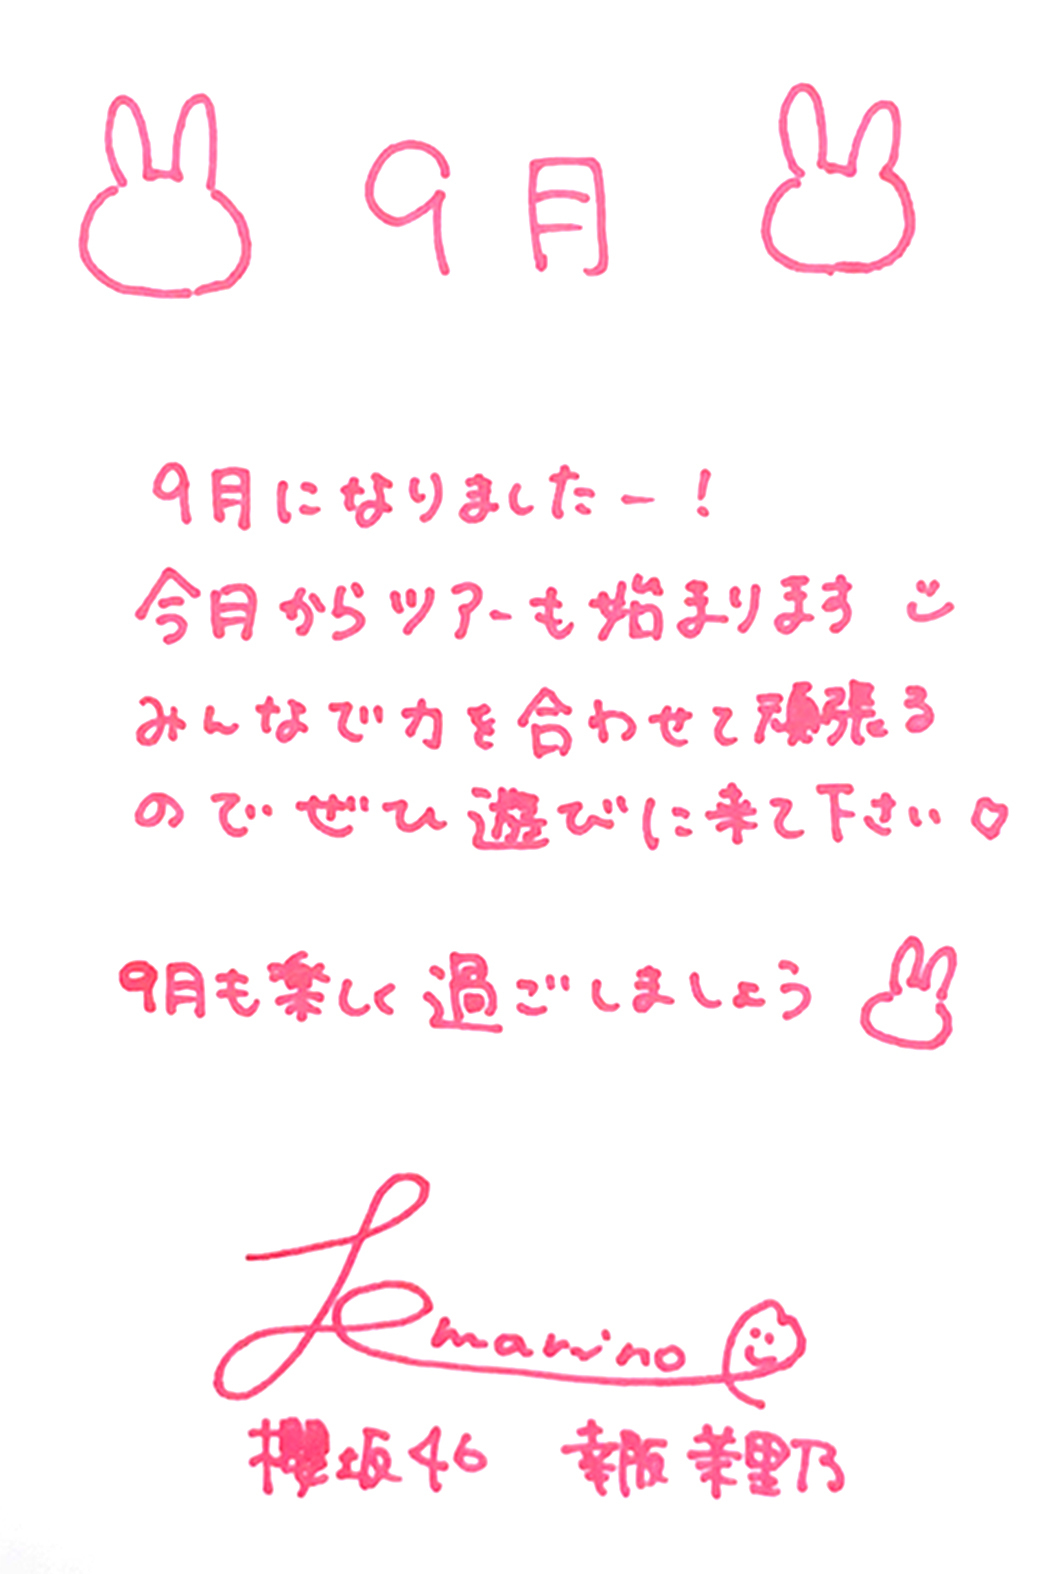 9月
9月になりましたー!
今月からツアーも始まります
みんなで力を合わせて頑張る
のでぜひ遊びに来て下さい♡
9月も楽しく過ごしましょう
marino
櫻坂46 幸阪茉里乃